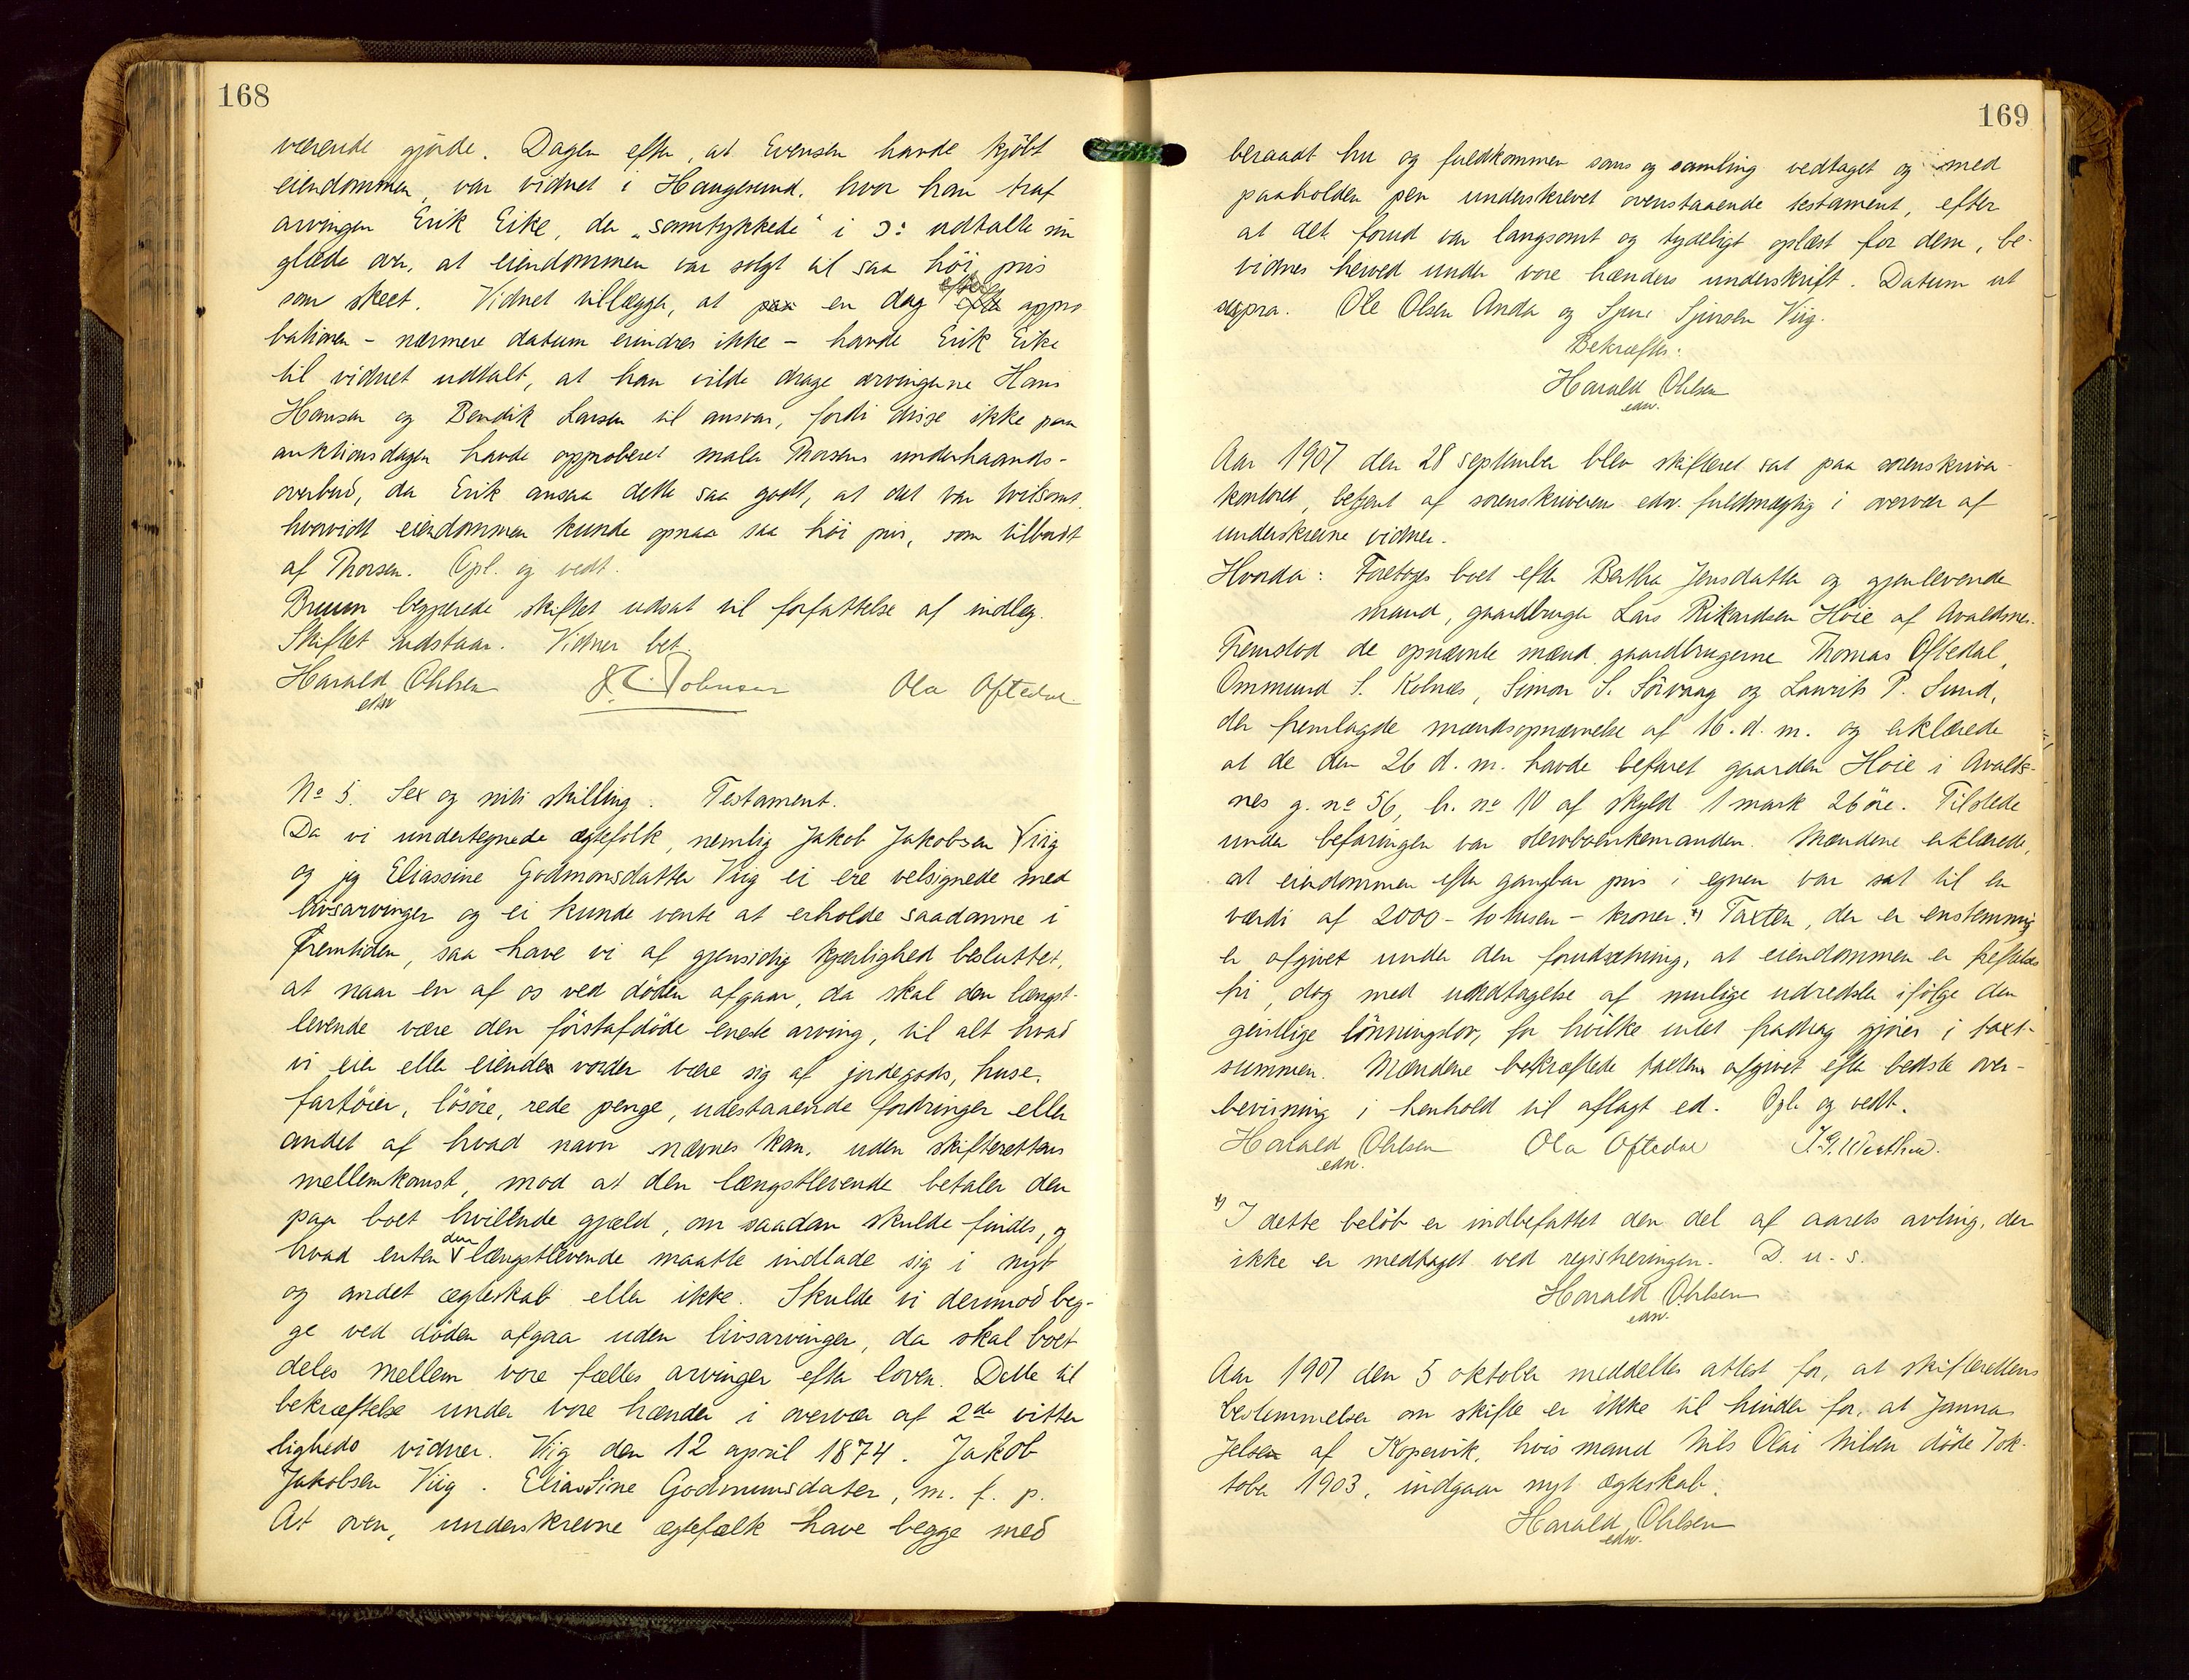 168
værende gjørde. Dagen efter, at Evensen havde kjøbt
eiendommen, var vidnet i Haugesund, hvor han traf
arvingen Erik Eike, der „samtykkede" i ɔ: udtalte sin
glæde over, at eiendommen var solgt til saa høi pris
som skeet. Vidnet tillægger, at paa en dag efter appro
bationen - nærmere datum erindres ikke - havde Erik Eike
til vidnet udtalt, at han vilde drage arvingerne Hans
Hansen og Bendik Larsen til ansvar, fordi disse ikke paa
auktionsdagen havde approberet maler Thorsens underhaands-
overbud, da Erik ansaa dette saa godt, at det var tvilsomt,
hvorvidt eiendommen kunde opnaa saa høi pris, som tilbudt
af Thorsen. Opl. og vedt.
Bruun begjærede skiftet udsat til forfattelse af indlæg.
Skiftet udstaar. Vidner bet.
Harald Ohlsen J. C. Johnsen Ola Oftedal
edsv
No 5. Sex og niti skilling. Testament.
Da vi undertegnede ægtefolk, nemlig Jakob Jakobsen Viig
og jeg Eliassine Godmonsdatter Viig ei ere velsignede med
livsarvinger og ei kunde vente at erholde saadanne i
fremtiden, saa have vi af gjensidig kjærlighed besluttet,
at naar en af os ved døden afgaar, da skal den længst-
levende være den førstafdøde eneste arving, til alt hvad
vi eier eller eiendes vorder være sig af jordegods, huse,
fartøier, løsøre, rede penge, udestaaende fordringer eller
andet af hvad navn nævnes kan, uden skifterettens
mellemkomst, mod at den længstlevende betaler den
paa boet hvilende gjæld, om saadan skulde findes, og
hvad enten den længstlevende maatte indlade sig i nyt
og andet ægteskab eller ikke. Skulde vi derimod beg-
ge ved døden afgaa uden livsarvinger, da skal boet
deles mellem vore fælles arvinger efter loven. Dette til
bekræftelse under vore hænder i overvær af 2de vitter
ligheds vidner. Viig den 12 april 1874. Jakob
Jakobsen Viig. Eliassine Godmunsdater, m. f. p.
At oven, underskrevne ægtefælk have begge med
169
beraadt hu og fuldkommen sans og samling vedtaget og med
paaholden pen underskrevet ovenstaaende testament, efter
at det forud var langsomt og tydeligt oplæst for dem, be-
vidnes herved under vore hænders underskrift. Datum ut
supra. Ole Olsen Anda og Sjur Sjursen Viig.
Bekræftes:
Harald Ohlsen
edsv.
Aar 1907 den 28 september blev skifteret sat paa sorenskriver-
kontoret, betjent af sorenskriverens edsv. fuldmægtig i overvær af
underskrevne vidner.
Hvorda: Foretoges boet efter Bertha Jensdatter og gjenlevende
mand, gaardbruger Lars Rikardsen Høie af Avaldsnes.
Fremstod de opnævnte mænd gaardbrugerne Thomas Oftedal,
Ommund S. Kolnes, Simon S. Sørvaag og Laurits P. Sund,
der fremlagde mændsopnævnelse af 16. d. m. og erklærede
at de den 26 d. m. havde befaret gaarden Høie i Avalds-
nes g. no 56, b. no 10 af skyld 1 mark 26 øre. Tilstede
under befaringen var sterboenkemanden. Mændene erklærede,
at eiendommen efter gangbar pris i egnen var sat til en
værdi af 2000 - to tusen - kroner. *) Taxten, der er enstemmig
er afgivet under den forudsætning, at eiendommen er heftelses
fri, dog med undtagelse af mulige udredsler ifølge den
geistlige lønningslov, for hvilke intet fradrag gjøres i taxt-
summen. Mændene bekræftede taxten afgivet efter bedste over-
bevisning i henhold til aflagt ed. Opl. og vedt.
Harald Ohlsen Ola Oftedal
edsv.
*) I dette beløb er indbefattet den del af aarets avling, der
ikke er medtaget ved registreringen. D. u. s.
Harald Ohlsen
edsv.
Aar 1907 den 5 oktober meddeltes attest for, at skifterettens
bestemmelser om skifte er ikke til hinder for, at Janna
Jelsen af Kopervik, hvis mand Nils Olai Nilsen døde 7 ok-
tober 1903, indgaar nyt ægteskab.
Harald Ohlsen
edsv.